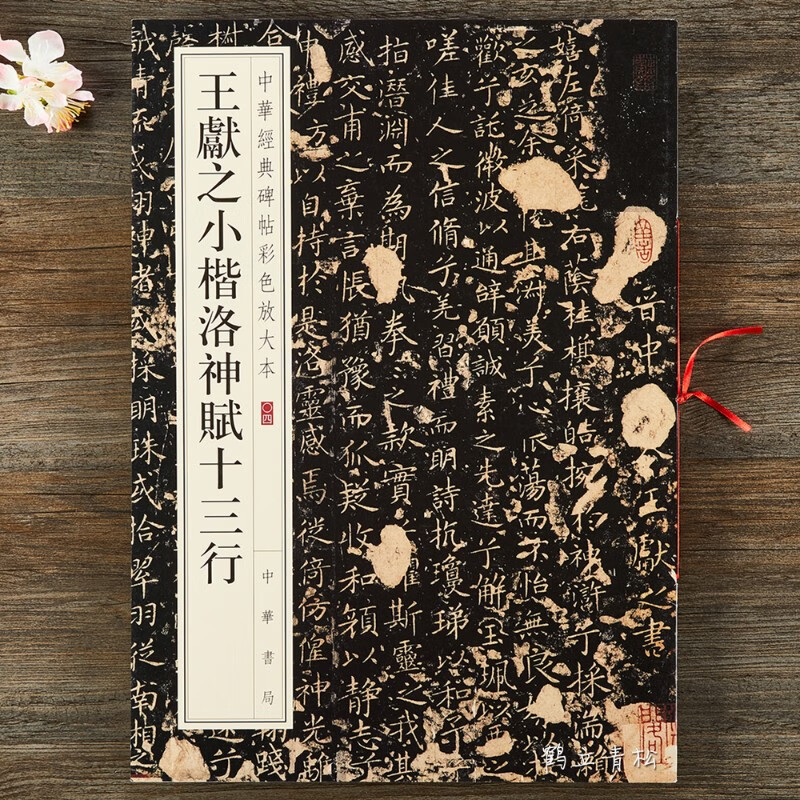 中華經典碑帖彩色放大本 〇四
王獻之小楷洛神賦十三行
中華書局
晉中 令王獻之書
嬉左倚采旄右蔭桂旗攘皓捥於神滸兮採湍瀨
之玄芝余 悅其淑美兮心振蕩而不怡無良媒
歡兮託微波以通辭願誠素之先達兮解玉珮以要之
嗟佳人之信脩兮羌習禮而明詩抗瓊珶以和予兮
指潛淵而為期執拳拳之款實兮懼斯靈之我欺
感交甫之棄言悵猶豫而狐疑收和顏以静志兮
申禮防以自持於是洛靈感焉徙倚仿偟神光離
清流或翔神渚或採明珠或拾翠羽從南湘之